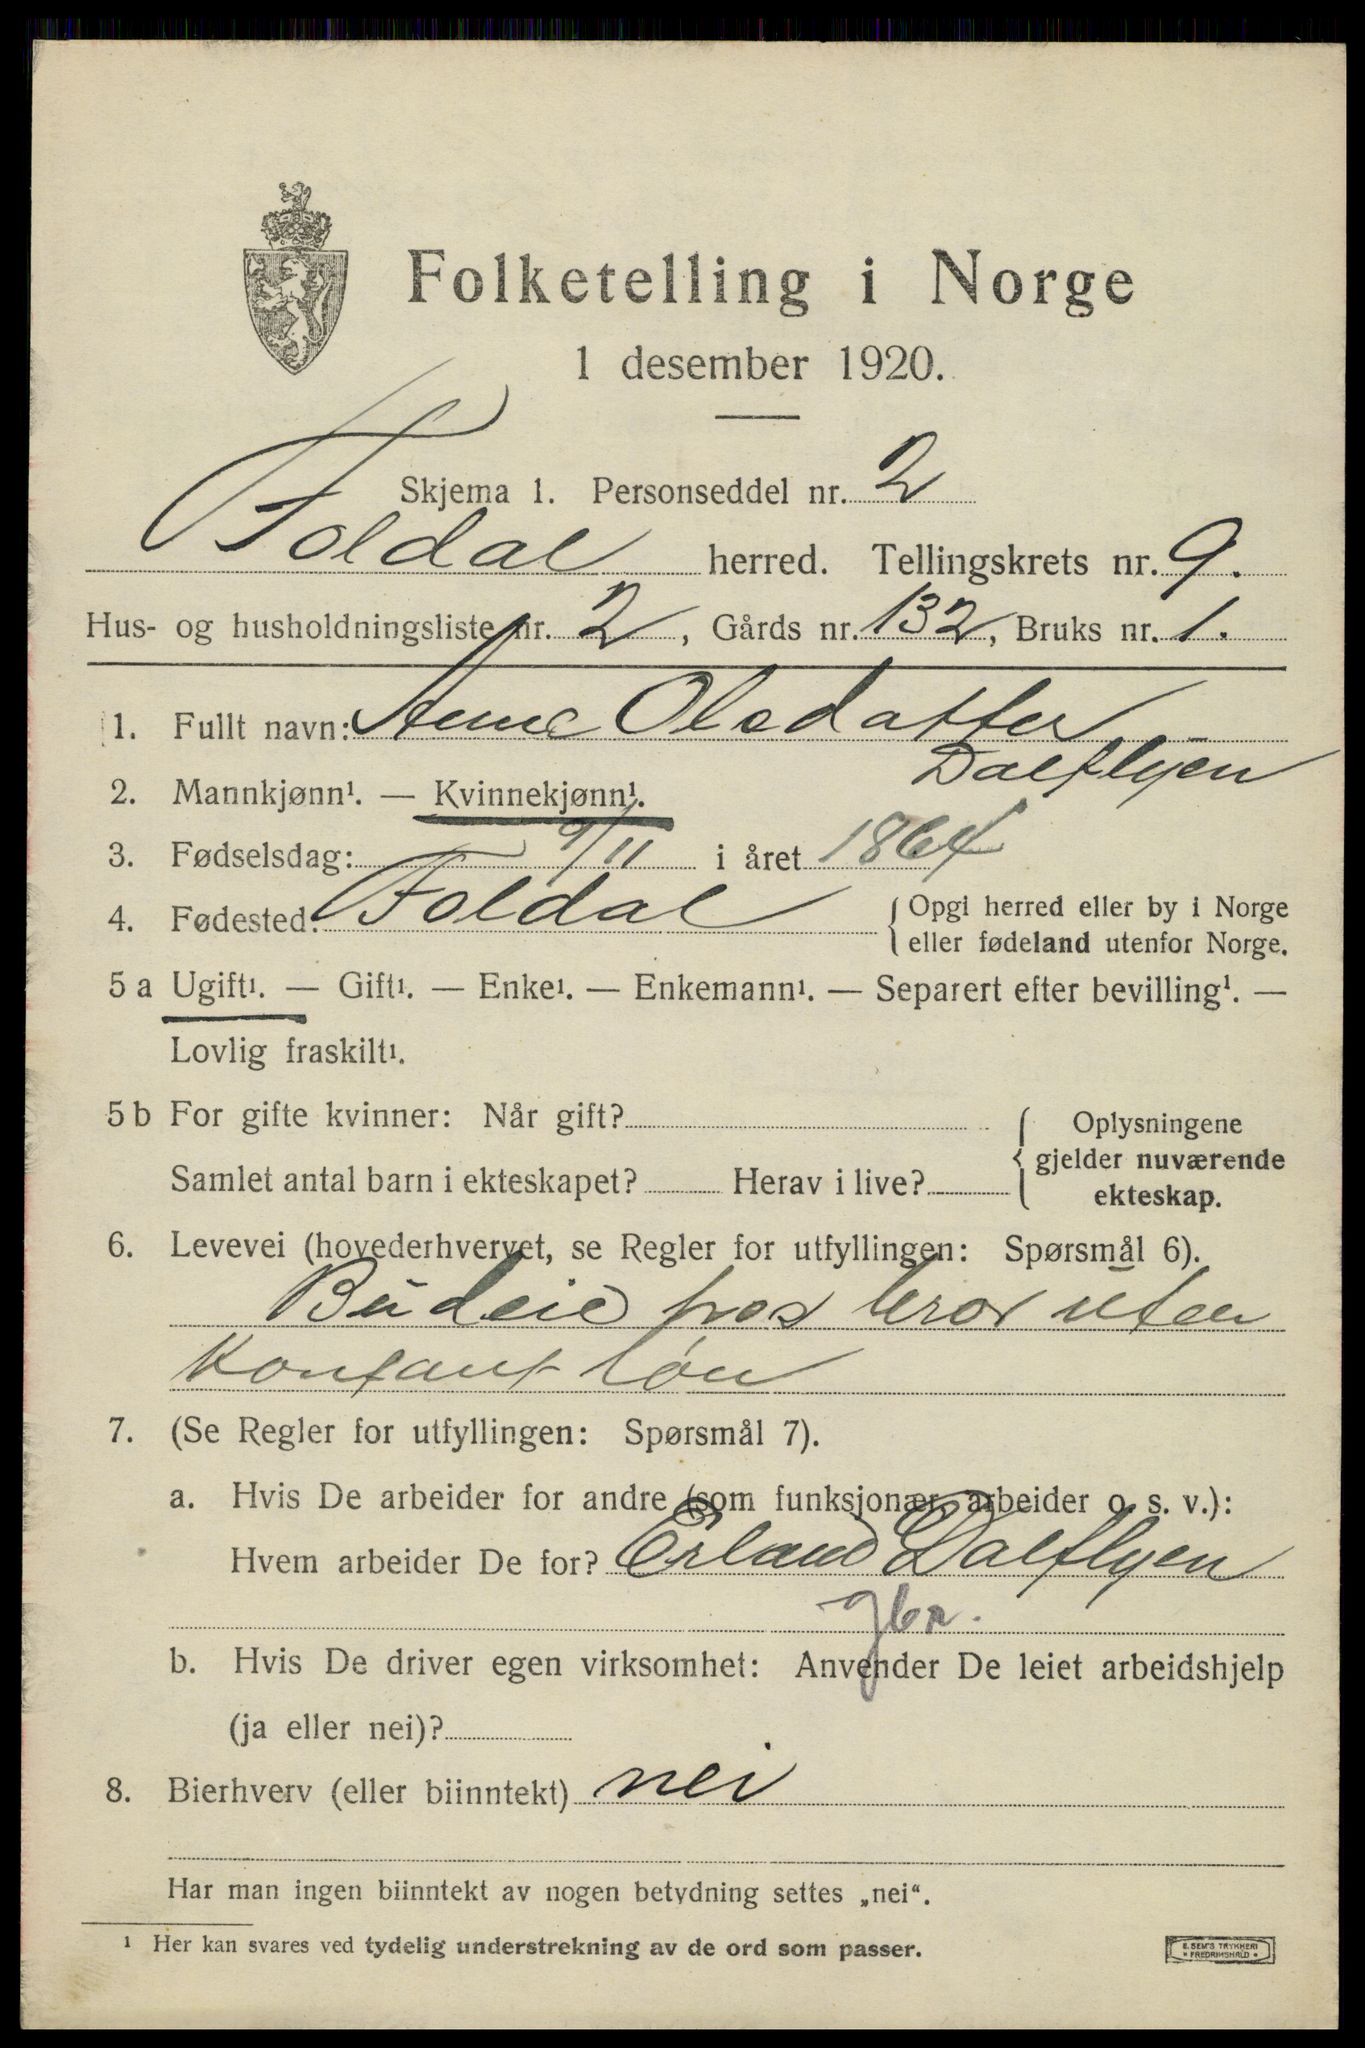 Folketelling i Norge
1 desember 1920.
Skjema 1. Personseddel nr. 2
Foldal herred. Tellingskrets nr. 9.
Hus- og husholdningsliste nr. 2, Gårds nr. 132, Bruks nr. 1.
1. Fullt navn: Anne Olsdatter
Dalflyen
2. Mannkjønn¹. — Kvinnekjønn¹.
3. Fødselsdag: 9/11 i året 1864
4. Fødested: Foldal { Opgi herred eller by i Norge
eller fødeland utenfor Norge.
5 a Ugift¹. — Gift¹. — Enke¹. — Enkemann¹. — Separert efter bevilling¹. —
Lovlig fraskilt¹.
5 b For gifte kvinner: Når gift? { Oplysningene
gjelder nuværende
Samlet antal barn i ekteskapet? Herav i live? ekteskap.
6. Levevei (hovederhvervet, se Regler for utfyllingen: Spørsmål 6).
Budeie hos bror uten
kontant løn
7. (Se Regler for utfyllingen: Spørsmål 7).
a. Hvis De arbeider for andre (som funksjonær, arbeider o. s. v.):
Hvem arbeider De for? Erland Dalflyen
gbr.
b. Hvis De driver egen virksomhet: Anvender De leiet arbeidshjelp
(ja eller nei)?
8. Bierhverv (eller biinntekt) nei
Har man ingen biinntekt av nogen betydning settes „nei“.
¹ Her kan svares ved tydelig understrekning av de ord som passer.
E. SEM'S TRYKKERI
* FREDRIKSHALD *